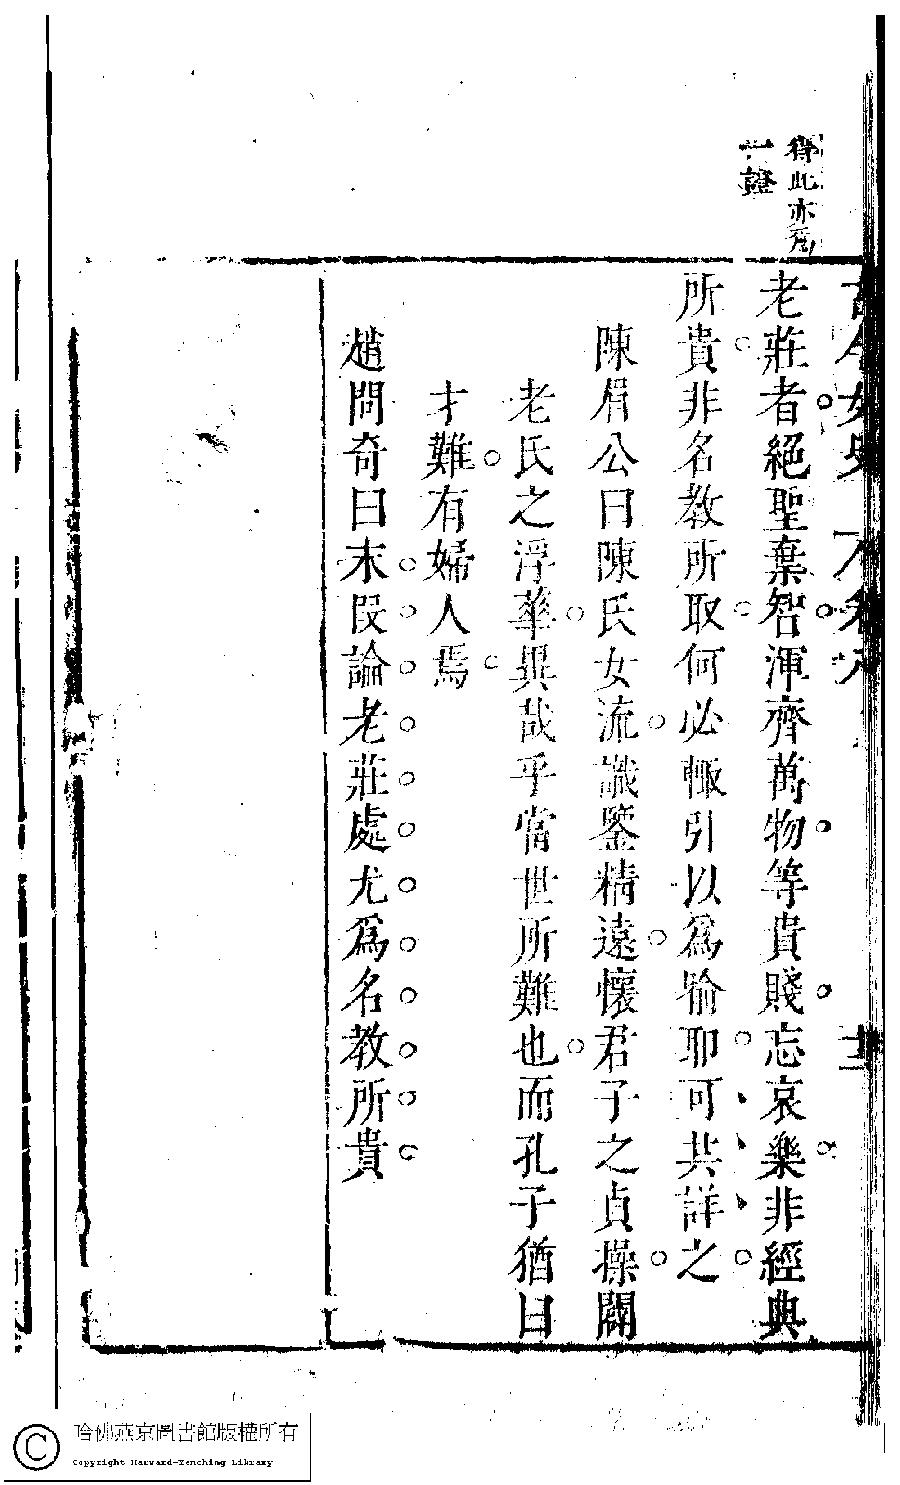 得此亦爲
一證
古今女史　八卷六　十三
老莊者絕聖棄智渾齊萬物等貴賤忘哀樂非經典
所貴非名教所取何必輒引以爲喻耶可共詳之
陳眉公曰陳氏女流識鑒精遠懷君子之貞操闢
老氏之浮華異哉乎當世所難也而孔子猶曰
才難有婦人焉
趙問奇曰末段論老莊處尤爲名教所貴
哈佛燕京圖書館版權所有
Copyright Harvard-Yenching Library